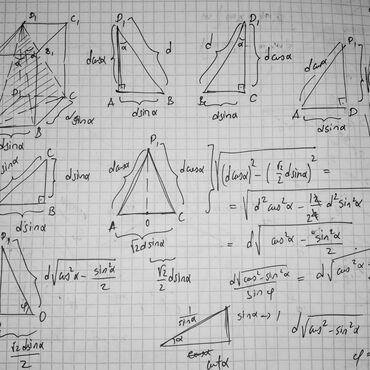 D₁ C₁
α
B₁
D₁ C
B
dsinα
dsinα
D₁
α
dcosα
d
A B
dsinα
D₁
α
d
dcosα
B C
dsinα
D₁
dcosα
A D
dsinα
C
dsinα
B
dsinα
D₁
dcosα
dcosα
A O C
√2dsinα
√2/2 dsinα
√((dcosα)² − (√2/2 dsinα)²) =
= √(d²cos²α − d²sin²α
= d√(cos²α − sin²α/2)
D₁
φ
O
√2dsinα/2
d√(cos²α − sin²α/2)
d√(cos²−sin²α)/sinφ
= d√(cos²α −
1/sinα
α
cosα
ctgα
sinα → 1
d√(cos²−sin²α)
φ =